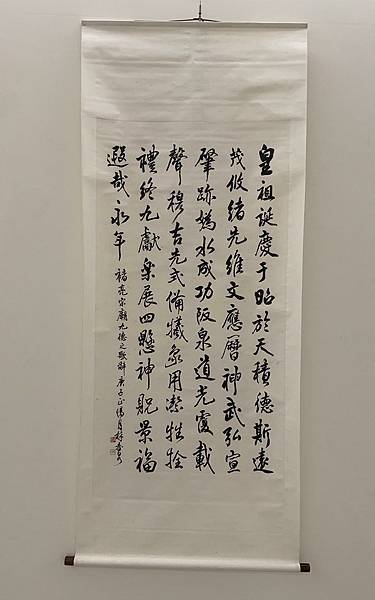 皇祖誕慶于昭於天積德斯遠
茂攸緒先維文應曆神武弘宣
肇跡媯水成功阪泉道光覆載
聲穆吉先式備犧象用潔牲牷
禮終九獻樂展四懸神貺景福
遐哉永年
褚亮宗廟九德之歌辭 庚子正陽月